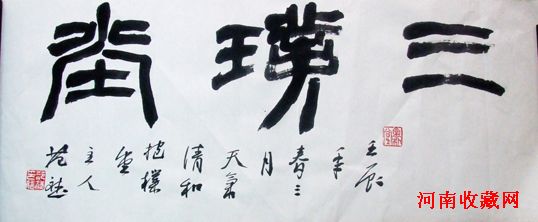 三璞坣
壬辰
年
春三
月
天氣
清和
抱樸
坣
主人
范
河南收藏网